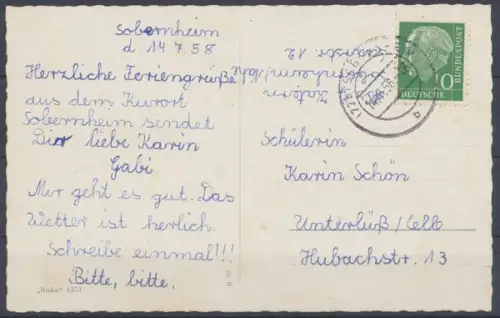 Sobernheim
d 14.7.58
Herzliche Feriengrüße
aus dem Kurort
Sobernheim sendet
Dir liebe Karin
Gabi
Mir geht es gut. Das
Wetter ist herlich.
Schreibe einmal!!!
Bitte, bitte.
Sobernheim/Nahe
10
DEUTSCHE
BUNDESPOST
Schülerin
Karin Schön
Unterlüß/Celle
Hubachstr. 13